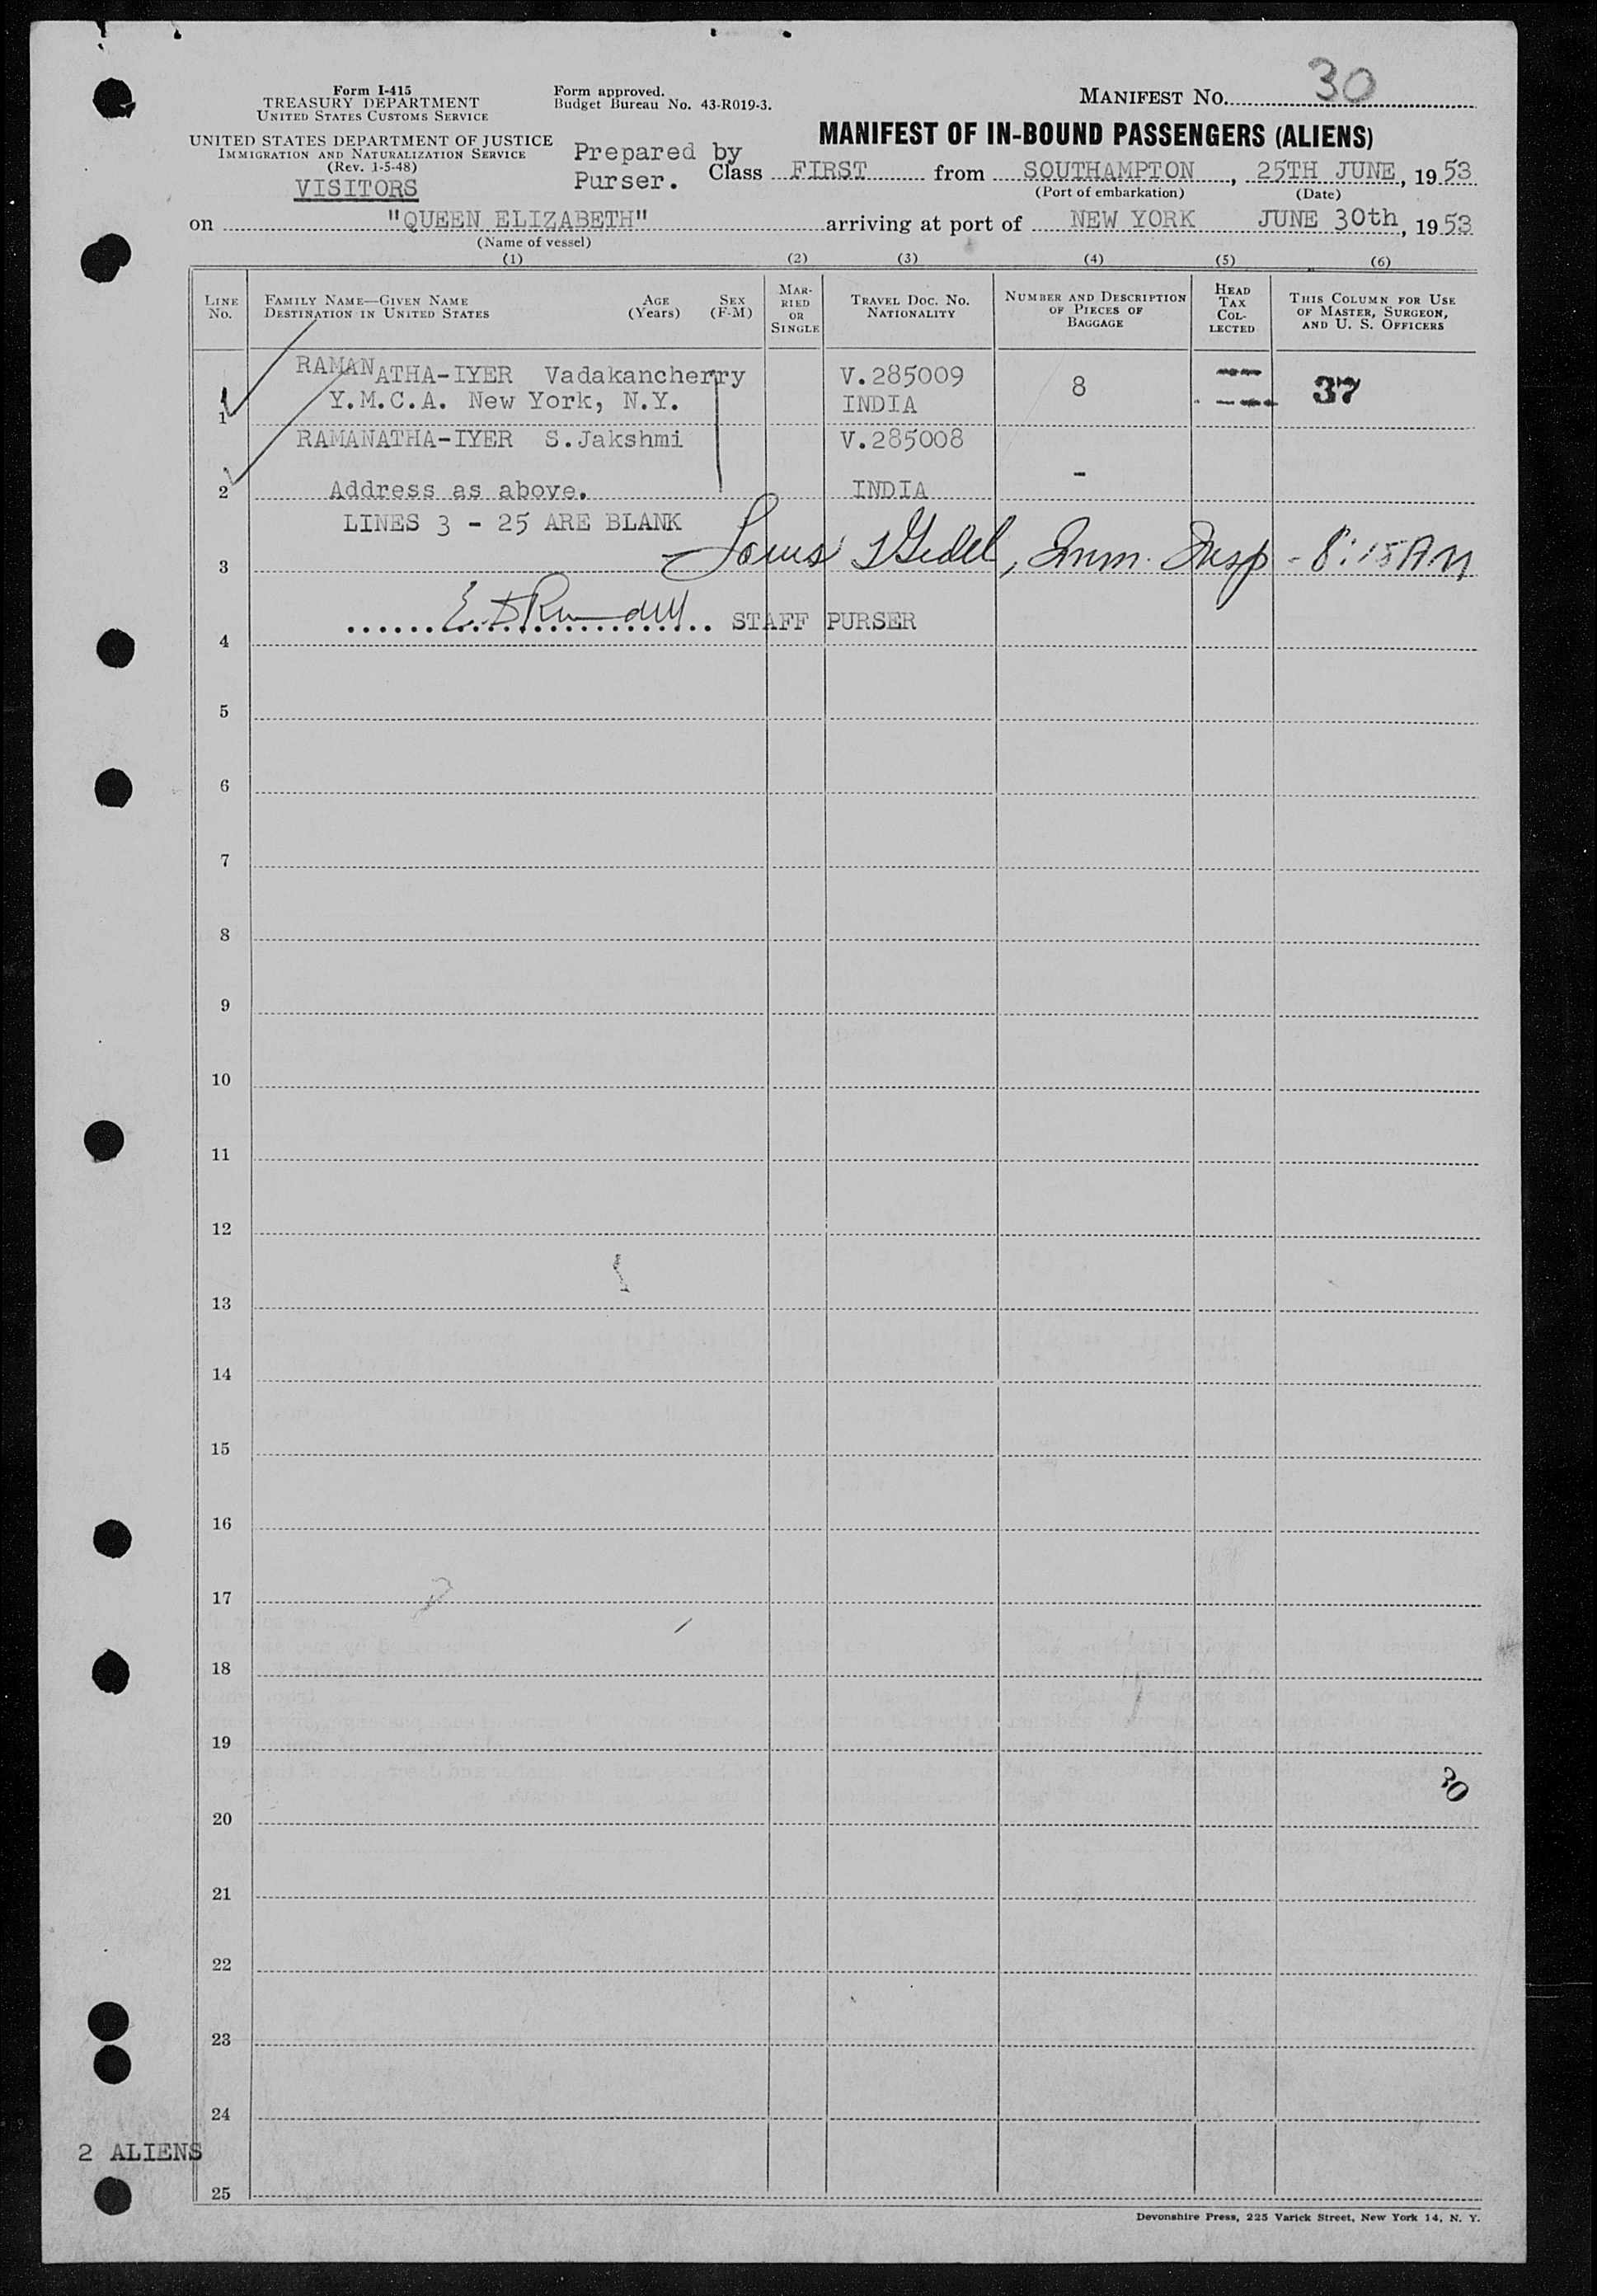 Form I-415
TREASURY DEPARTMENT
UNITED STATES CUSTOMS SERVICE
Form approved.
Budget Bureau No. 43-R019-3.
MANIFEST NO. 30
UNITED STATES DEPARTMENT OF JUSTICE
IMMIGRATION AND NATURALIZATION SERVICE
(Rev. 1-5-48)
VISITORS
Prepared by
Purser.
MANIFEST OF IN-BOUND PASSENGERS (ALIENS)
Class FIRST from SOUTHAMPTON, 25TH JUNE, 1953
(Port of embarkation) (Date)
on "QUEEN ELIZABETH" arriving at port of NEW YORK JUNE 30th, 1953
(Name of vessel)
(1) (2) (3) (4) (5) (6)
LINE NO.
FAMILY NAME—GIVEN NAME
DESTINATION IN UNITED STATES
AGE (Years)
SEX (F-M)
MARRIED OR SINGLE
TRAVEL DOC. NO.
NATIONALITY
NUMBER AND DESCRIPTION OF PIECES OF BAGGAGE
HEAD TAX COLLECTED
THIS COLUMN FOR USE OF MASTER, SURGEON, AND U. S. OFFICERS
RAMANATHA-IYER Vadakancherry V.285009 8 37
1 Y.M.C.A. New York, N.Y. INDIA
RAMANATHA-IYER S.Jakshmi V.285008 -
2 Address as above. INDIA
LINES 3 - 25 ARE BLANK
3 Louis Imm. Insp - 8:15 AM
4 STAFF PURSER
5
6
7
8
9
10
11
12
13
14
15
16
17
18
19
30
20
21
22
23
24
2 ALIENS
25
Devonshire Press, 225 Varick Street, New York 14, N. Y.